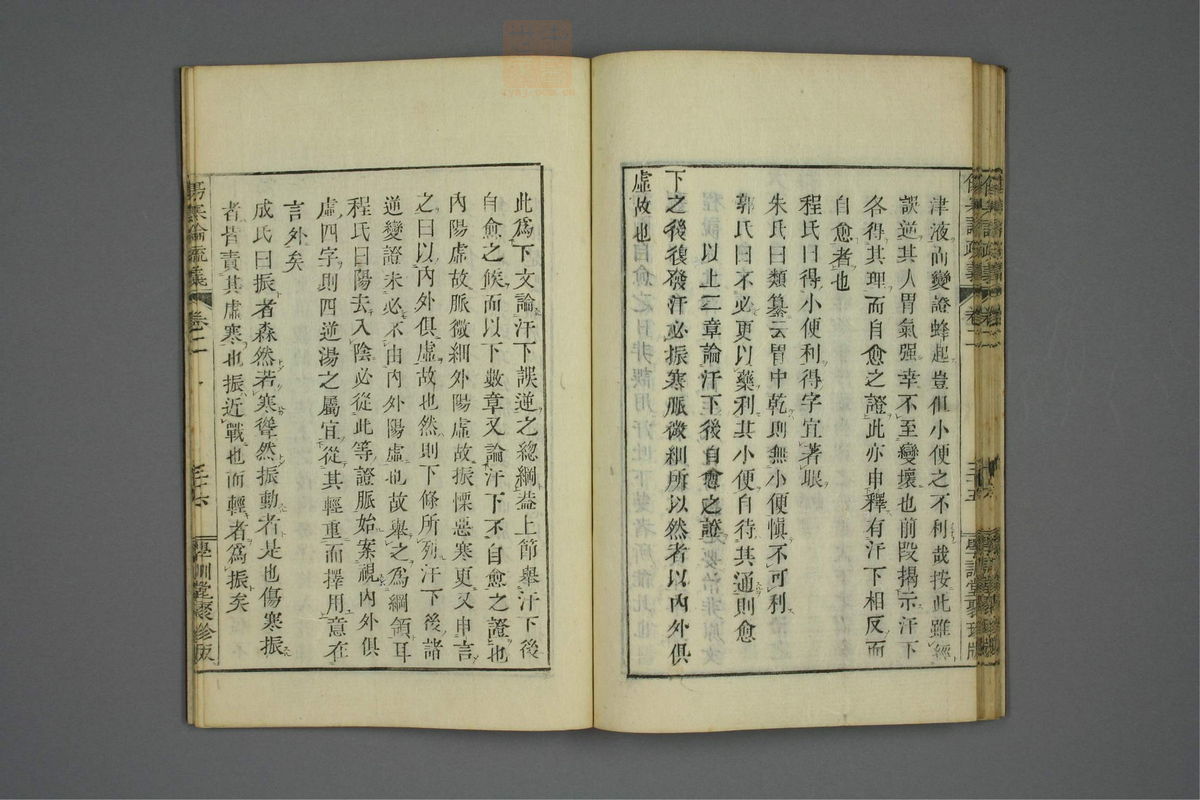 津液內變證蜂起豈但小便之不利哉按此雖經
誤逆其人胃氣强幸不至變壞也前段揭示汗下
各得其理而自愈之證此亦申釋有汗下相反而
自愈者也
程氏曰得小便利得字宜著眼
朱氏曰類纂云胃中乾則無小便愼不可利
郭氏曰不必更以藥利其小便自待其通則愈
以上二章論汗下後自愈之證
下之後復發汗必振寒脈微細所以然者以內外俱
虛故也
傷寒論疏義
卷二
三十五
學訓堂聚珍版
此爲下文論汗下誤逆之總綱葢上節舉汗下後
自愈之候而以下數章又論汗下不自愈之證也
內陽虛故脈微細外陽虛故振慄惡寒更又申言
之曰以內外俱虛故也然則下條所列汗下後諸
逆變證未必不由內外陽虛也故舉之爲綱領耳
程氏曰陽去入陰必從此等證脈始案視內外俱
虛四字則四逆湯之屬宜從其輕重而擇用意在
言外矣
成氏曰振者森然若寒聳然振動者是也傷寒振
者皆責其虛寒也振近戰也而輕者爲振矣
傷寒論疏義
卷二
三十六
學訓堂聚珍版